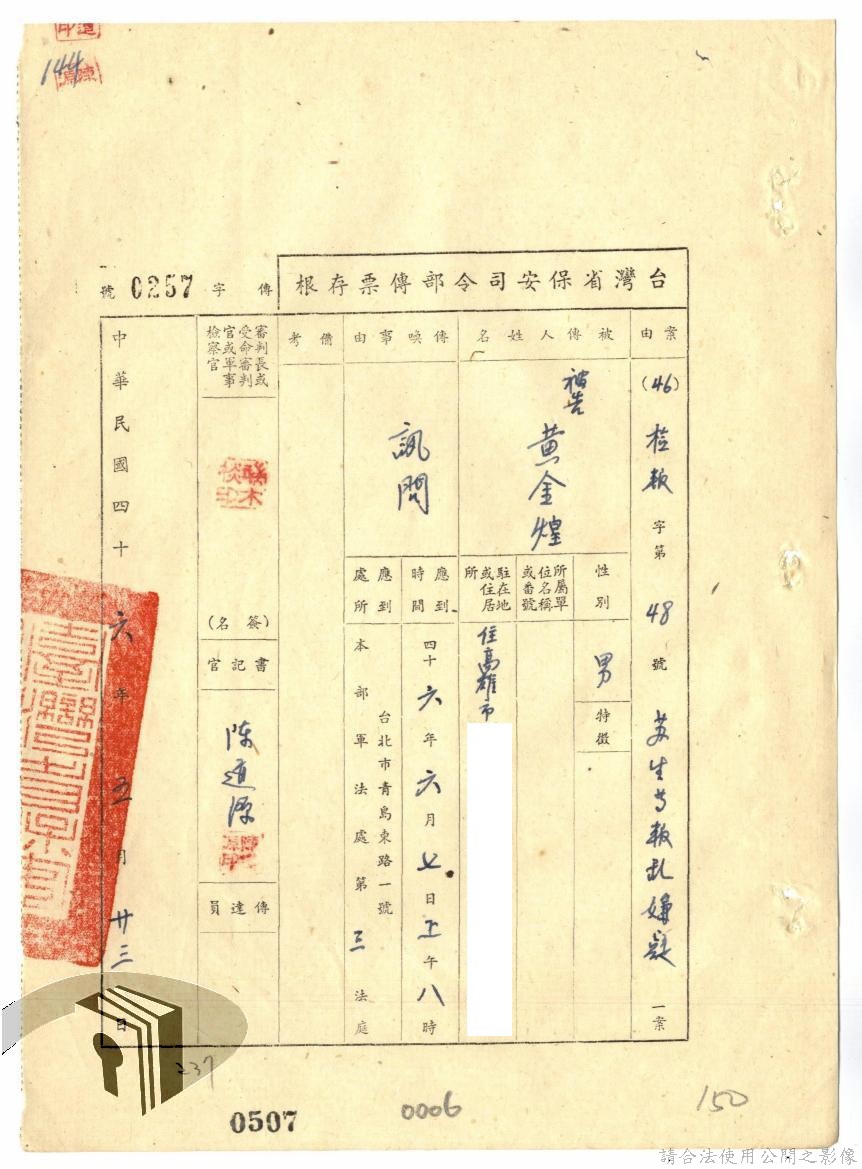 144
台灣省保安司令部傳票存根
傳字 0257 號
案由
(46) 檢叛字第48號 苏生等叛乱嫌疑一案
被傳人姓名
被告 黃金煌
性別
男
特徵
所屬單位名稱或番號
駐在地或住居所
住高雄市
傳喚事由
訊問
應到時間
四十六年六月七日上午八時
應到處所
台北市青島東路一號
本部軍法處第三法庭
備考
審判長或受命審判官或軍事檢察官
(簽名)
書記官
陈道源
傳達員
中華民國四十六年五月廿三日
237
0507
0006
150
請合法使用公開之影像